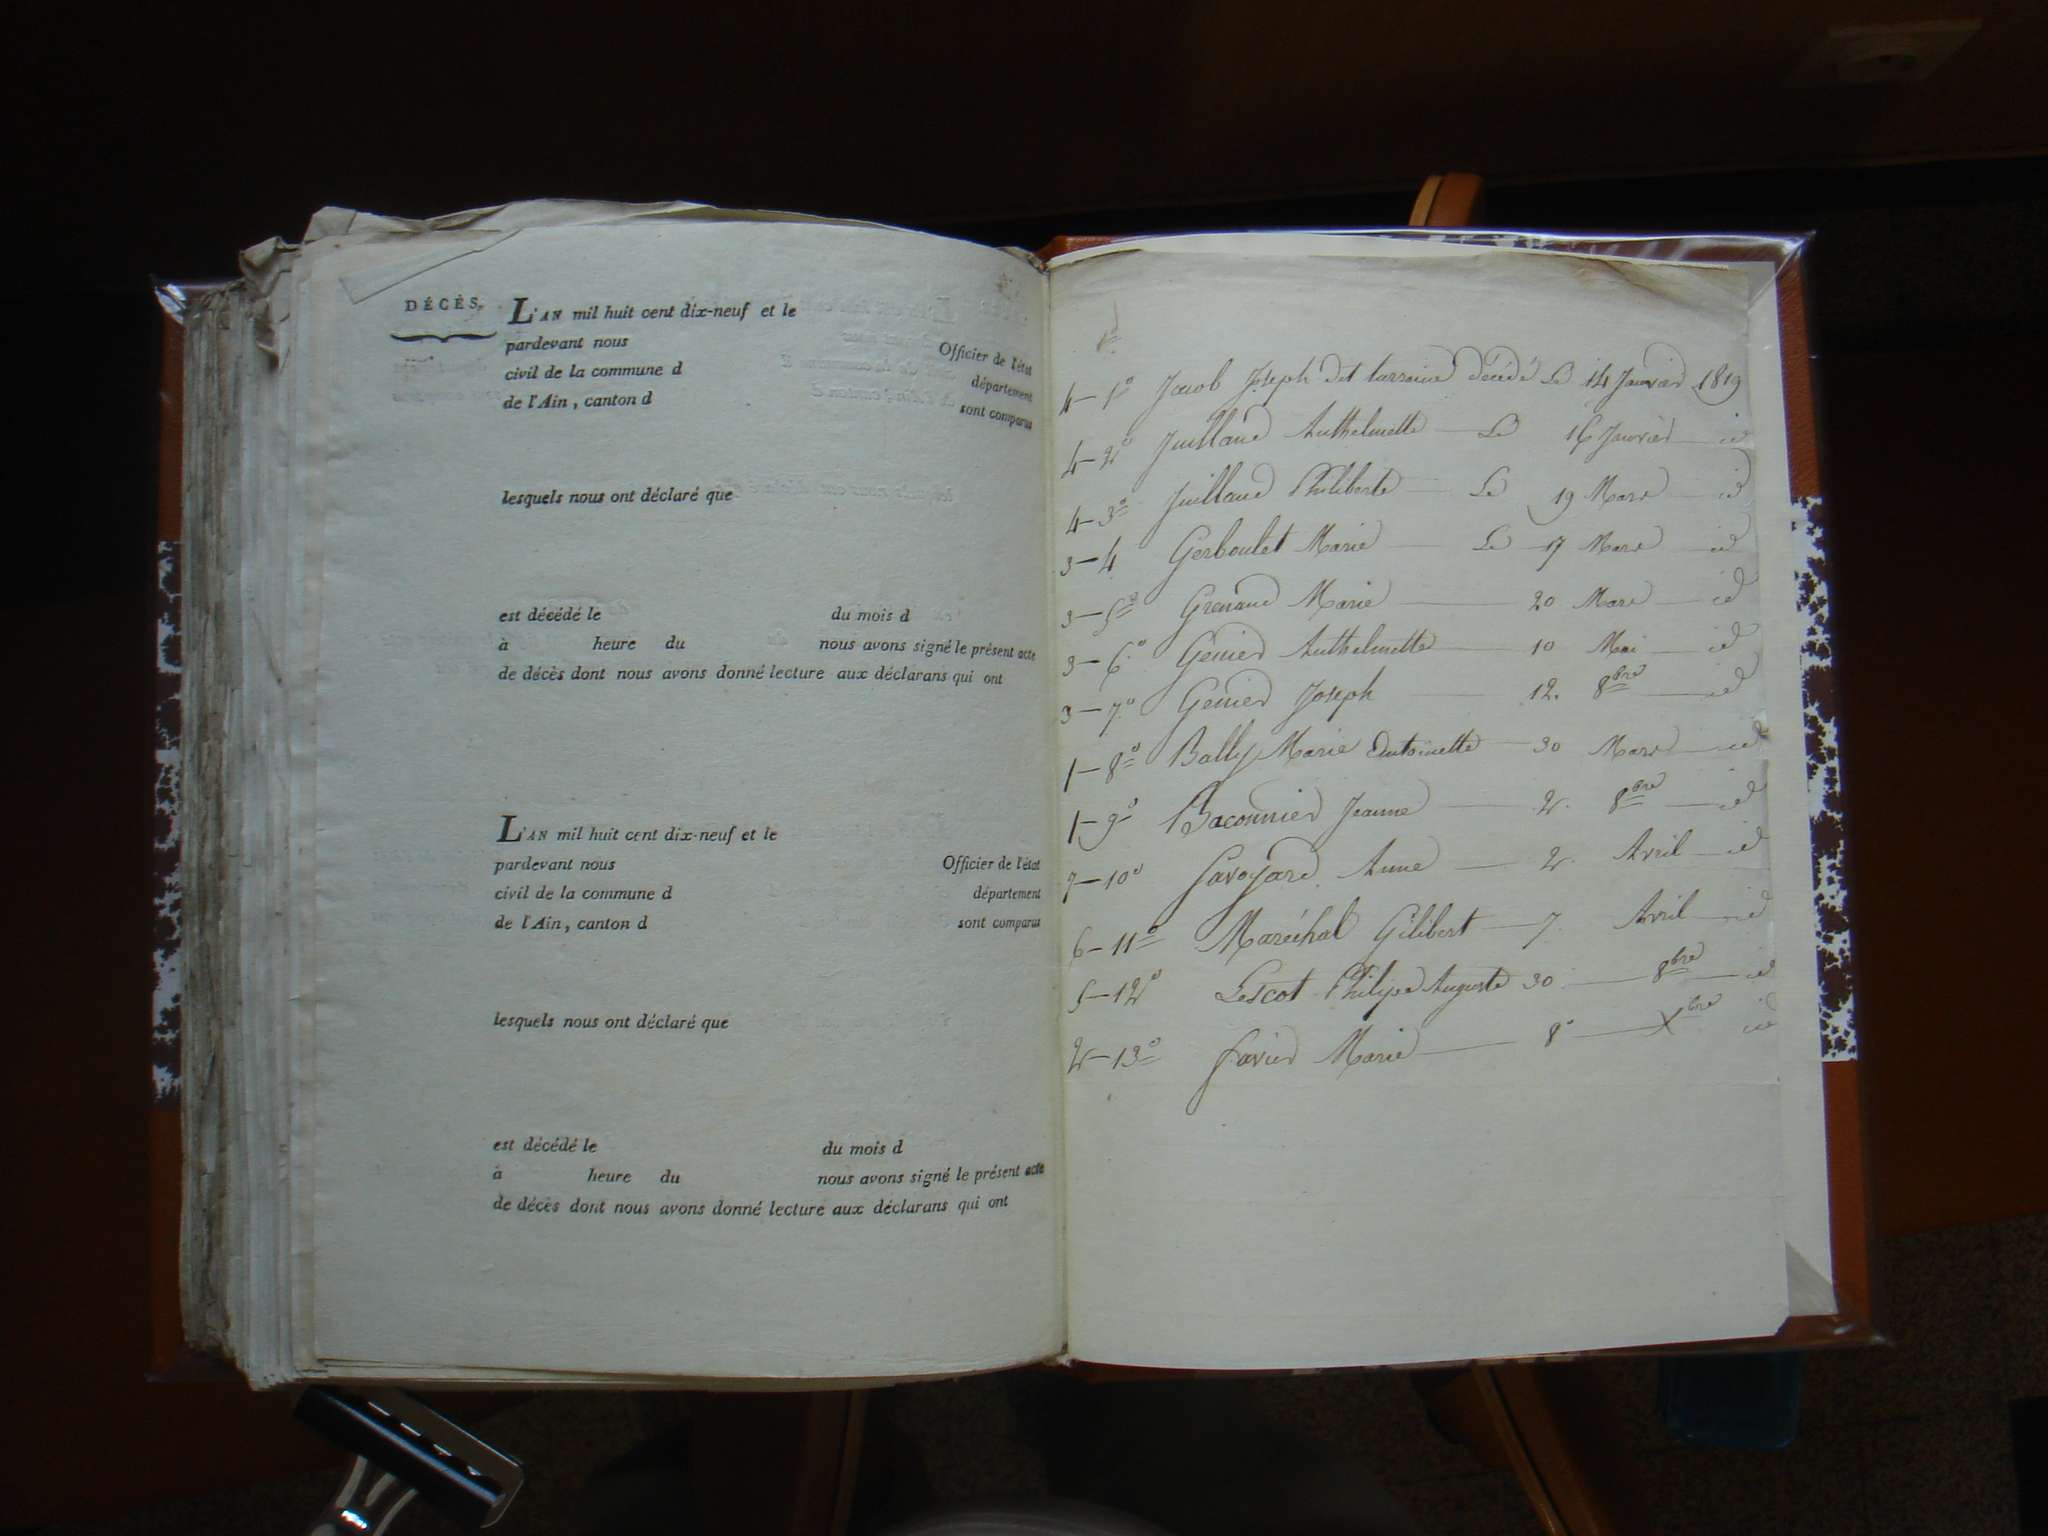 DÉCÈS.
L'AN mil huit cent dix-neuf et le
pardevant nous Officier de l'état
civil de la commune d département
de l'Ain, canton d sont comparus
lesquels nous ont déclaré que
est décédé le du mois d
à heure du nous avons signé le présent acte
de décès dont nous avons donné lecture aux déclarans qui ont
L'AN mil huit cent dix-neuf et le
pardevant nous Officier de l'état
civil de la commune d département
de l'Ain, canton d sont comparus
lesquels nous ont déclaré que
est décédé le du mois d
à heure du nous avons signé le présent acte
de décès dont nous avons donné lecture aux déclarans qui ont
4-1° Jacob Joseph dit larraine décédé Le 14 Janvier 1819
4-2° Juilland Anthelmette Le 16 Janvier id
4-3° Juilland Philiberte Le 19 Mars id
3-4 Gerboulet Marie Le 17 Mars id
3-5° Grenaud Marie 20 Mars id
3-6° Genier Anthelmette 10 Mai id
3-7° Genier Joseph 12. 8bre id
1-8° Bally Marie Antoinette 30 Mars id
1-9° Baconnier Jeanne 2. 8bre id
7-10° Savoyard Anne 2. Avril id
6-11° Maréchal Gilibert 7. Avril id
5-12° Lescot Philipe Auguste 30 8bre id
2-13° favier Marie 8° Xbre id